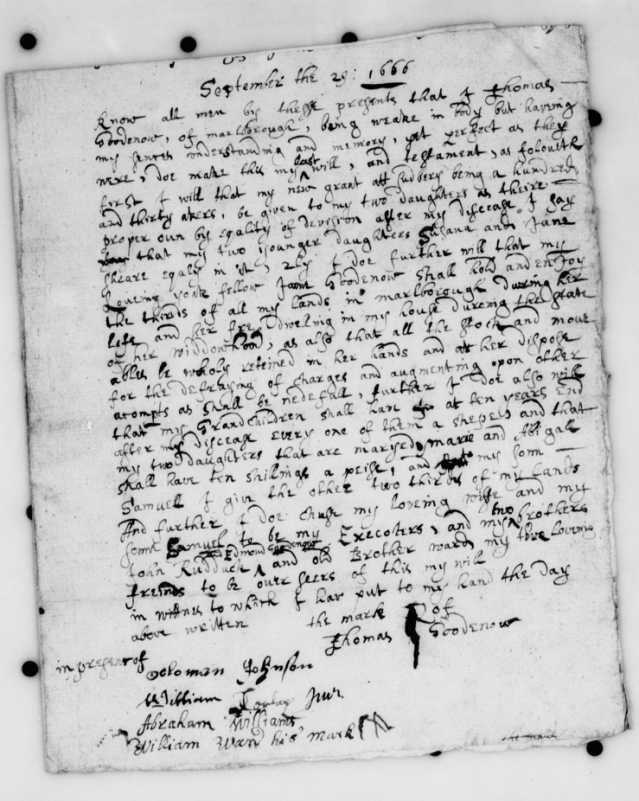 September the 29: 1666
Know all men by these presents that I Thomas
Goodenow, of marlborough, being weake in body but having
my sences understanding and memory, yet perfect as they
were, doe make this my last will, and testament, as foloweth
first I will that my new grant att Sudbery being a hundred
and thirty akers, be given to my two daughters as theire
proper own by egality of devision after my discease I say
that my two younger daughters Susana and Jane
sheare egaly in it, 2ly I doe further will that my
Loveing yoak fellow Jane Goodenow shall hold and enjoy
the thirds of all my lands in marlborough during her
life and her free dweling in my house dureing the state
of her widdowhood, as also that all the stock and move
ables be wholy reteined in her hands and at her dispose
for the defraying of charges and augmenting upon other
acompts as shall be nedefull, further I doe also will
that my Grandchildren shall have at ten years end
after my discease every one of them a sheep and that
my two daughters that are maryed marie and Abigal
shall have ten shillings a peise, and my som
Samuell I give the other two thirds of my Lands
And further I doe chuse my loveing wife and my
som Samuel to be my Execoters, and my two brothers
John Rudduck and Edmond goodenow and old Brother ward my loveing
freinds to be over seers of this my will
in witnes to which I hav put to my hand the day
above written the mark of
Thomas Goodenow
in presenc of
Solomon Johnson
William Junr
Abraham Williams
William Ward his mark